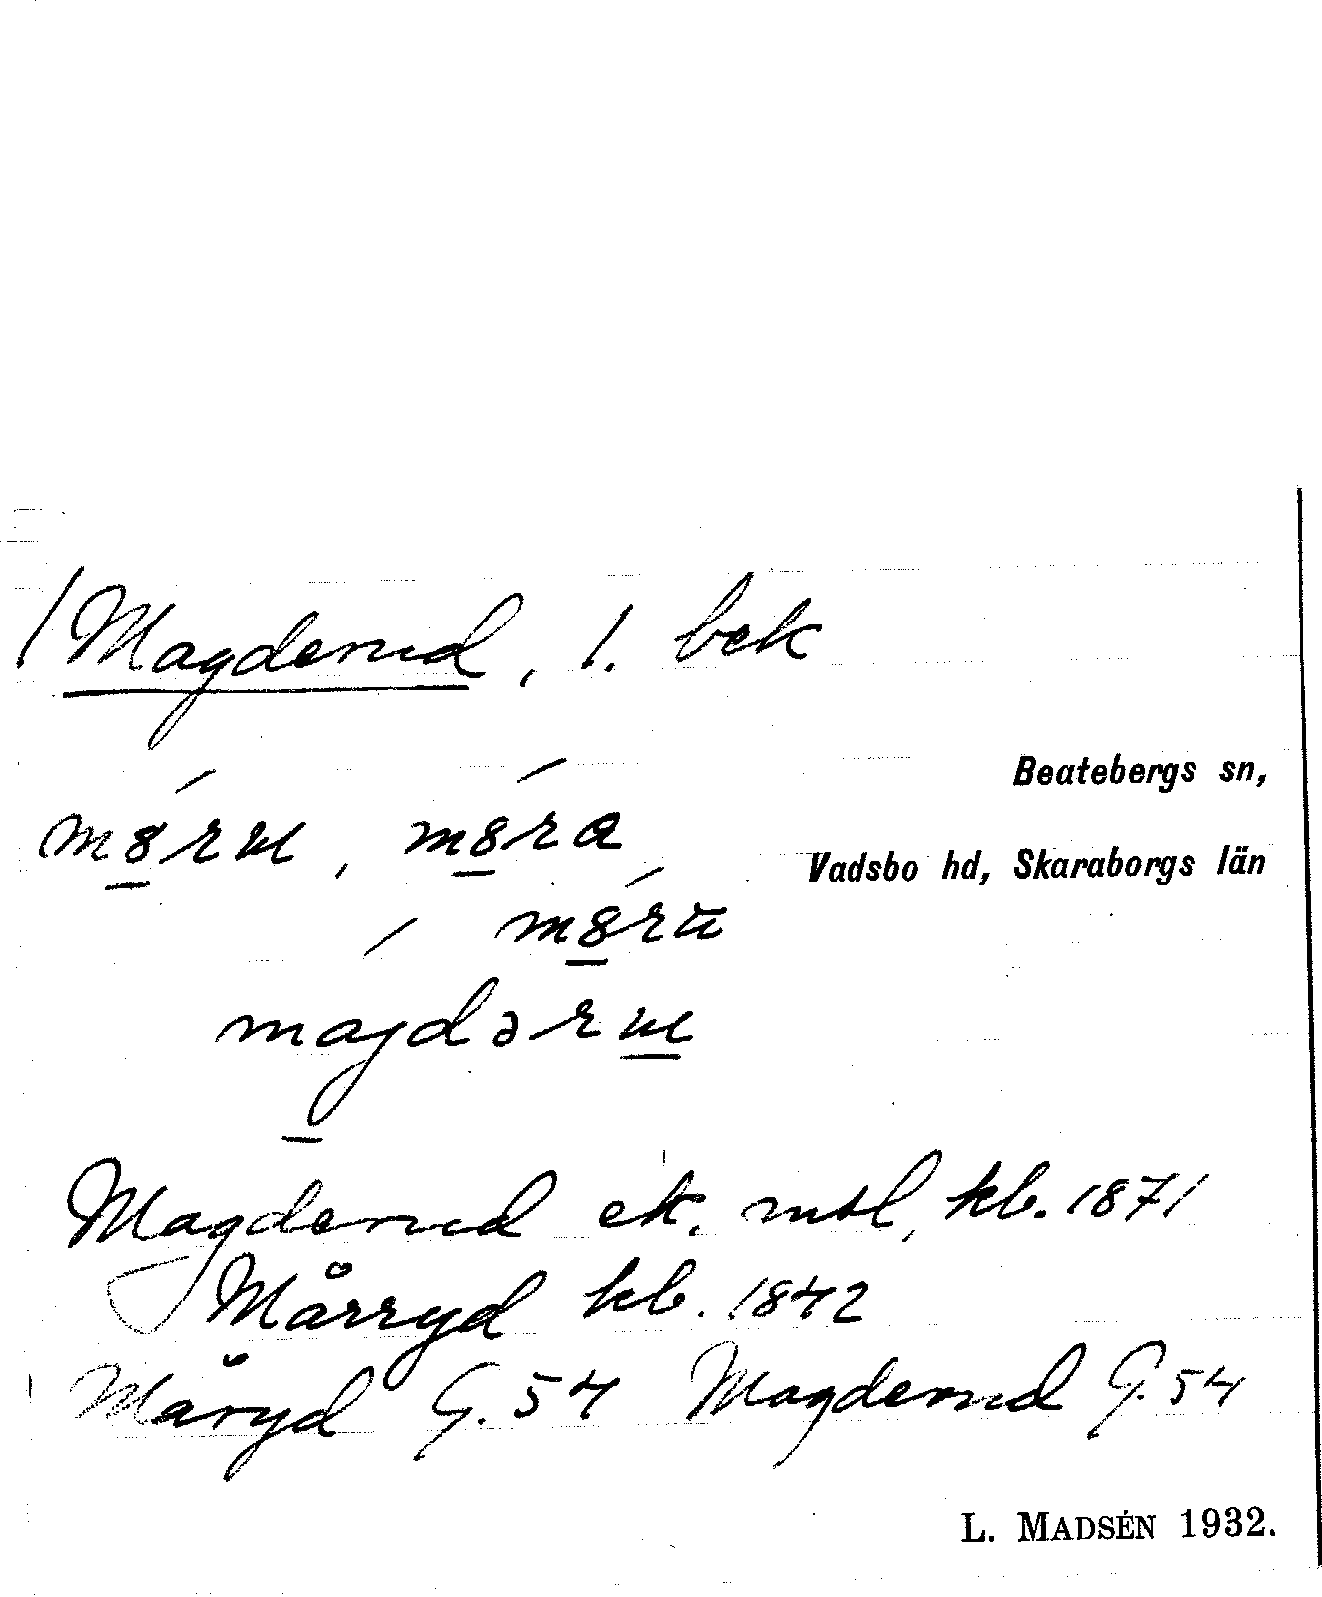 / Magderud, 1. bek
Beatebergs sn,
Vadsbo hd, Skaraborgs län
Magderud ek. mtl, kb. 1871
Mårryd kb. 1842
Måryd G. 54 Magderud G. 54
L. MADSÉN 1932.